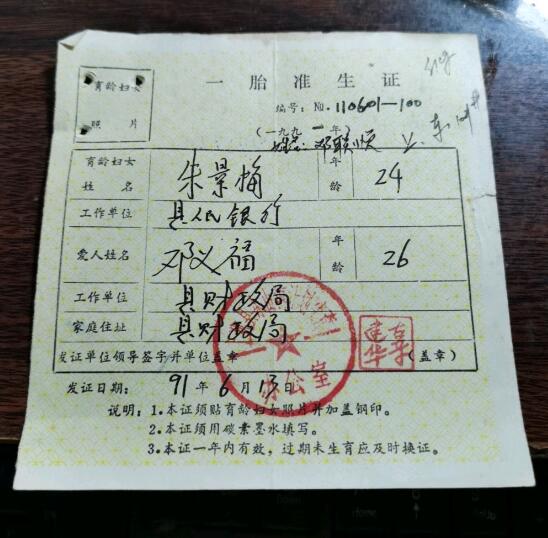 育龄妇女
照 片
一胎准生证
编号：№.110601—100
（一九九一年）
姓名：邓联顺 女
育龄妇女姓名 朱景梅 年龄 24
工作单位 县人民银行
爱人姓名 邓义福 年龄 26
工作单位 县财政局
家庭住址 县财政局
发证单位领导签字并单位盖章 （盖章）
办公室
发证日期： 91年6月13日
说明：1.本证须贴育龄妇女照片并加盖钢印。
2.本证须用碳素墨水填写。
3.本证一年内有效，过期未生育应及时换证。